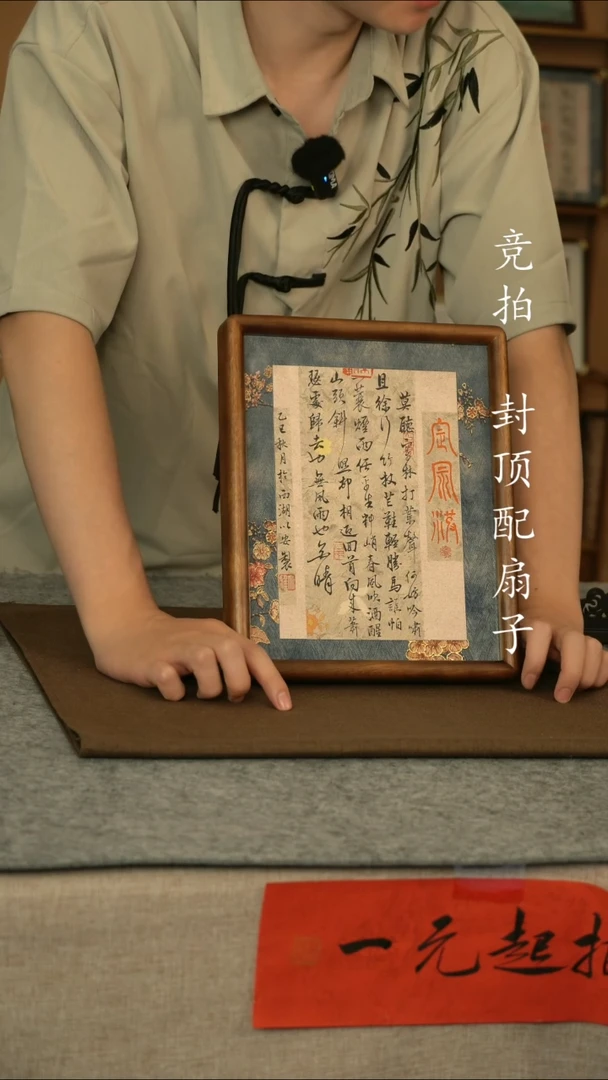 竞拍 封顶配扇子
定風波
莫聽穿林打葉聲 何妨吟嘯
且徐行 竹杖芒鞋輕勝馬 誰怕
一蓑煙雨任平生 料峭春風吹酒醒
山頭斜照却相迎回首向來蕭
瑟處歸去也無風雨也無晴
乙巳秋月於西湖以安製
一元起拍